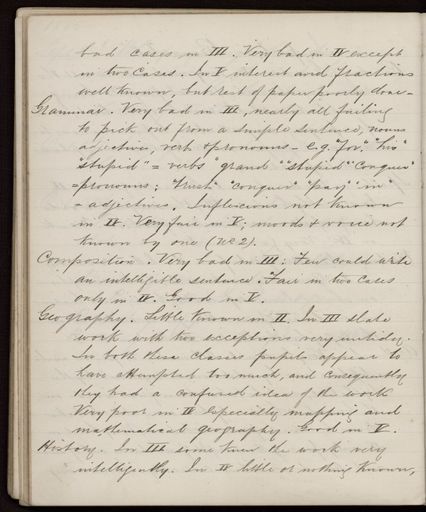 bad cases in III. Very bad in IV except
in two cases. In V interest and fractions
well known, but rest of paper poorly done -
Grammar. Very bad in III, nearly all failing
to pick out from a simple sentence, nouns
adjectives, verbs & pronouns - e.g. "for" "his"
"stupid" = verbs "grand" "stupid" "conquer"
= pronouns; "trust" "conquer" "pay" "in"
= adjectives. Inflexions not known
in IV. Very fair in V; moods & voice not
known by one (No 2).
Composition. Very bad in III: Few could write
an intelligible sentence. Fair in two cases
only in IV. Good in V.
Geography. Little known in II. In III slate
work with two exceptions very untidy.
In both these classes pupils appear to
have attempted too much, and consequently
they had a confused idea of the work
Very poor in IV especially mapping and
mathematical geography. Good in V.
History. In III some knew the work very
intelligently. In IV little or nothing known,